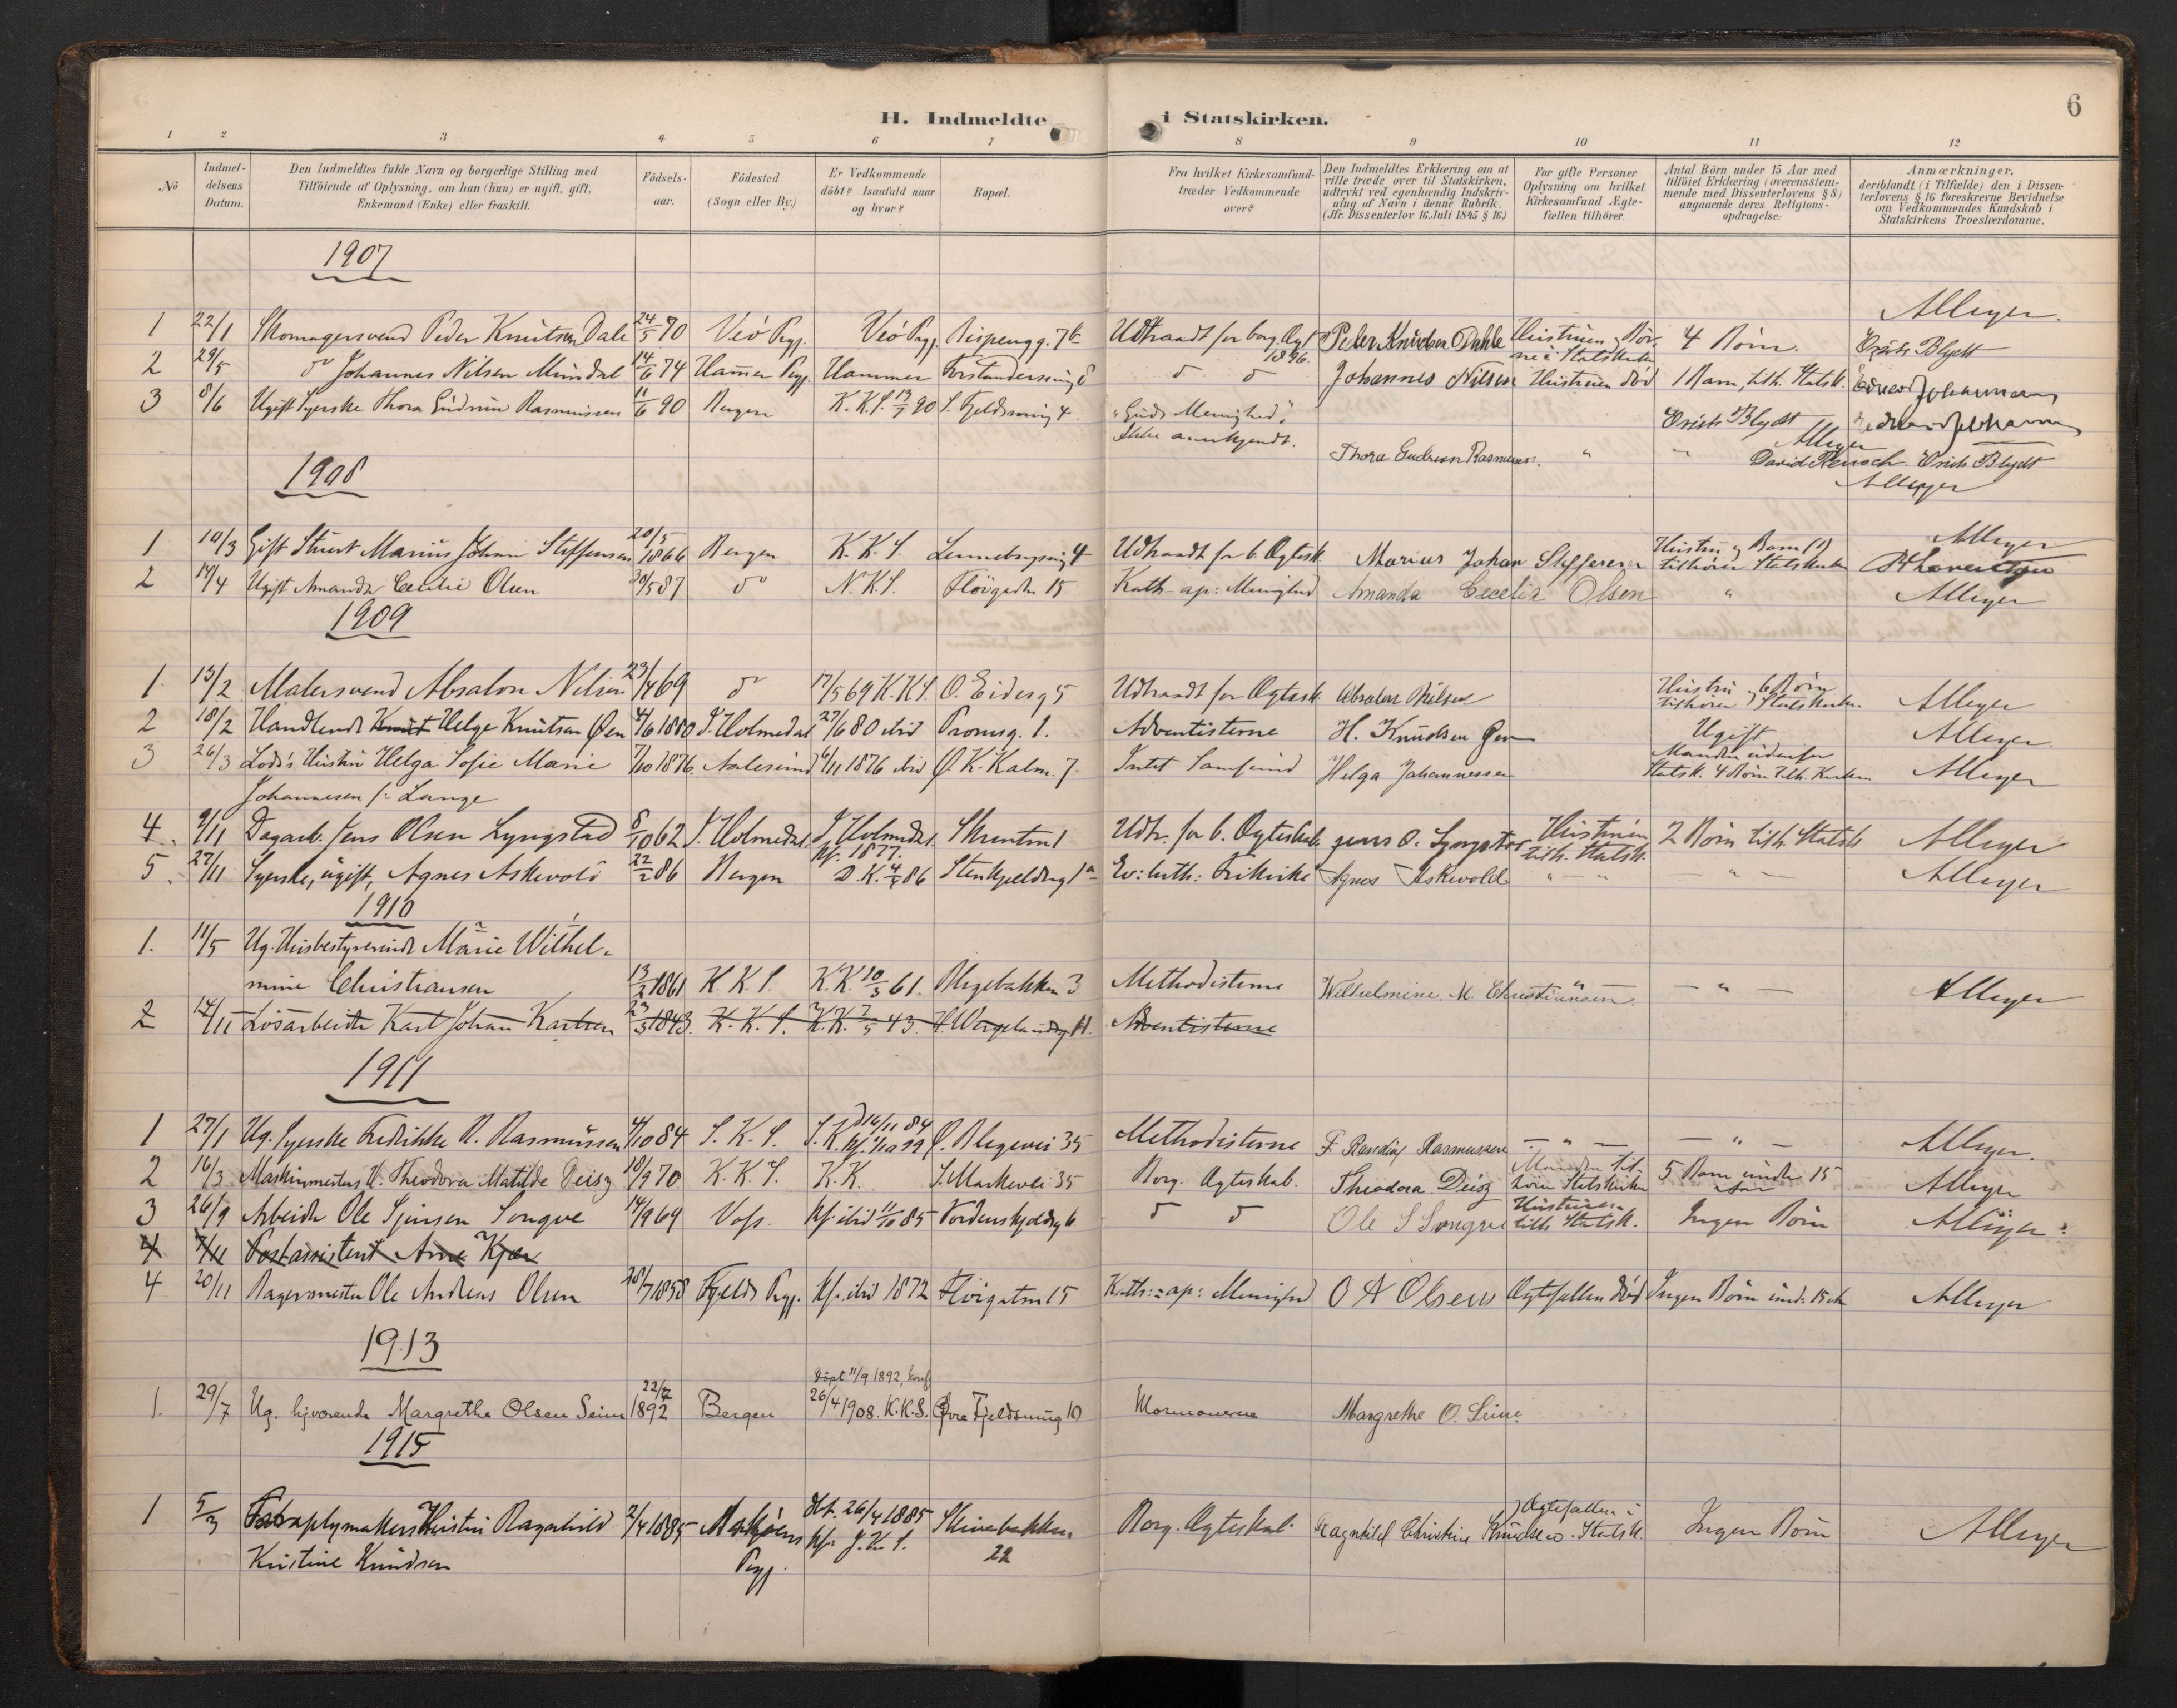 6
H. Indmeldte i Statskirken.
1 2 3 4 5 6 7 8 9 10 11 12
No
Indmel-
delsens
Datum.
Den Indmeldtes fulde Navn og borgerlige Stilling med
Tilföiende af Oplysning, om han (hun) er ugift, gift,
Enkemand (Enke) eller fraskilt.
Födsels-
aar.
Födested
(Sogn eller By.)
Er Vedkommende
döbt? Isaafald naar
og hvor?
Bopæl.
Fra hvilket Kirkesamfund
træder Vedkommende
over?
Den Indmeldtes Erklæring om at
ville træde over til Statskirken,
udtrykt ved egenhændig Indskriv-
ning af Navn i denne Rubrik.
(Jfr. Dissenterlov 16 Juli 1845 § 16.)
For gifte Personer
Oplysning om hvilket
Kirkesamfund Ægte-
fællen tilhörer.
Antal Börn under 15 Aar med
tilföiet Erklæring (overensstem-
mende med Dissenterlovens § 8)
angaaende deres Religions-
opdragelse.
Anmærkninger,
deriblandt (i Tilfælde) den i Dissen-
terlovens § 16 foreskrevne Bevidnelse
om Vedkommendes Kundskab i
Statskirkens Troeslærdomme.
1907
1 22/1 Skomagersvend Peder Knutsen Dale 24/5 70 Veö Pgj. Veö Pgj. Udtraadt for borg. Ægt. 1896 Peder Knudsen Dahle Hustruen og Bör- 4 Börn. Erich Blydt
ne i Statskirken
2 29/5 do Johannes Nilsen Mundal 14/6 74 Hamer Pgj. Hammer Forstandersmug 8 do do Johannes Nilsen Hustruen död 1 Barn, tilh. Statsk.
3 8/6 Ugift Syerske Thora Gudrun Rasmussen 11/6 90 Bergen K.K.S. 90 S. Fjeldsmug 4 "Guds Menighed",
Ikke anerkjendt.
Erich Blydt
Thora Gudrun Rasmussen. " " David Erich Blydt
1908
1 19/3 Gift Stuert Marius Johan Steffensen 20/5 1866 Bergen K.K.S. 4 Udtraadt for b. Ægtesk. Marius Johan Steffensen Hustru og Barn (1)
tilhörer Statskirken
2 14/4 Ugift Amanda Cecilie Olsen 30/5 87 do N.K.S. Fløigaden 15 Kath-ap: Menighed Amanda Cecelia Olsen "
1909
1. 13/2 Malersvend Absalon Nilsen 23/4 69 do 17/5 69 K.K.S. O. Eidesg 5 Udtraadt for Ægtesk. Absalon Nilsen Hustru og 6 Börn
tilhörer Statskirken
2 18/2 Handlende Knut Helge Knutsen Øen 4/6 1880 Y. Holmedal 27/6 80 ibid 1. Adventisterne H. Knudsen Øen Ugift
3 26/3 Lods's Hustru Helga Sofie Marie 7/10 1876 Aalesund 6/11 1876 ibid Ø. K. Kalm. 7 Intet Samfund Helga Johannessen Manden udenfor
Statsk. 4 Börn tilh. Kirken
Johannesen f: Lange
4. 9/11 Dagarb. Jens Olsen Lyngstad 8/10 62 Y. Holmedal. Y. Holmedal. Udtr. for b. Ægteskab Jens O. Lyngstad Hustruen 2 Börn tilh. Statsk
Kf. 1877. tilh. Statsk.
5. 27/11 Syerske, ugift, Agnes Askevold 22/2 86 Bergen D.K. 4/4 86 Stenkjeldersg 1a Ev: luth: Frikirke Agnes Askevold " "
1910
1. 11/5 Ug. Husbestyrerinde Marie Wilhel-
mine Christiansen 13/2 1861 K.K.S. K.K. 20/3 61. Blegebakken 3 Methodisterne Wilhelmine M. Christiansen. " "
2 14/11 Lösarbeider Karl Johan Karlsen 23/3 1843. K.K.S. K.K. 7/5 43. H. Wergelandsg 11. Adventisterne
1911
1 27/1 Ug. Syerske Fredrikke R. Rasmussen 4/10 84 S.K.S. S.K. 16/11 84 Ø. Blegevei 35 Methodisterne F. Randine Rasmussen " "
2 16/3 Maskinmesters H. Theodora Matilde Deisz 18/9 70 K.K.S. K.K. S. Markevei 35 Borg. Ægteskab. Theodora Deisz Manden til- 5 Barn under 15
hörer Statskirken Aar
3 26/9 Arbeider Ole Sjursen Songve 14/9 69 Voss. Kf. ibid 11/10 85 Nordenskjoldsg 6 do do Ole S Songve Hustruen Ingen Börn
tilh. Statsk.
4 7/11 Postassistent Arne Kjær
4 20/11 Bagermester Ole Andreas Olsen 28/7 1858 Fjelds Pgj. Kf. ibid 1872 Fløigaten 15 Kath:-ap: Menighed O A Olsen Ægtefællen död Ingen Börn und. 15 Aar
1913
1. 29/7 Ug. hjværende Margrethe Olsen Seim 22/7 1892 Bergen Döpt 11/9 1892, konf.
26/4 1908. K.K.S. Øvre Fjeldsmug 10 Mormonerne Margrethe O. Seim.
1915
1 5/3 Hustru Ragnhild 2/4 1885 Askøens Dt. 26/4 1885 Skivebakken Borg. Ægteskab. Ragnhild Christine Knudsen. Ægtefællen i
Statsk. Ingen Börn
Kristine Knudsen Pgj. Kf. J.K.S. 22